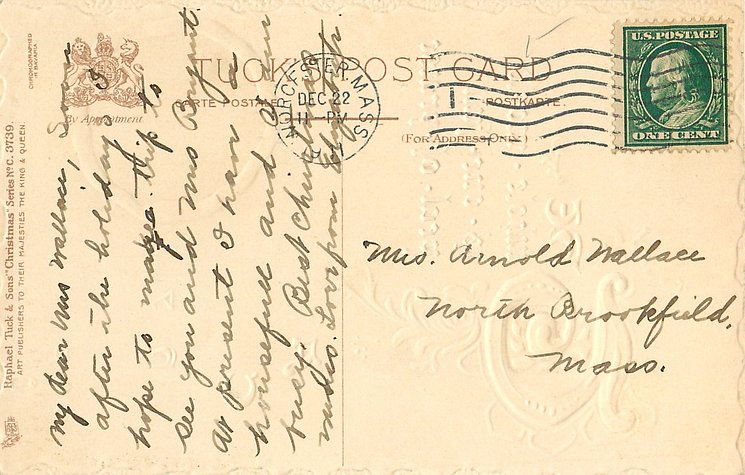 CHROMOGRAPHED
IN BAVARIA
By Appointment
Raphael Tuck & Sons' "Christmas" Series Nº C. 3739.
ART PUBLISHERS TO THEIR MAJESTIES THE KING & QUEEN.
TUCK'S POST CARD
CARTE POSTALE
POSTKARTE.
(FOR ADDRESS ONLY.)
WORCESTER, MASS.
DEC 22
11- PM
U.S. POSTAGE
ONE CENT
My Dear Mrs Wallace, Soon
after the holidays I
hope to make trip to
see you and Mrs Bryant.
At present I have a
housefull and I am
busy. Best Christmas
wishes. Love from
Mrs. Arnold Wallace
North Brookfield,
Mass.